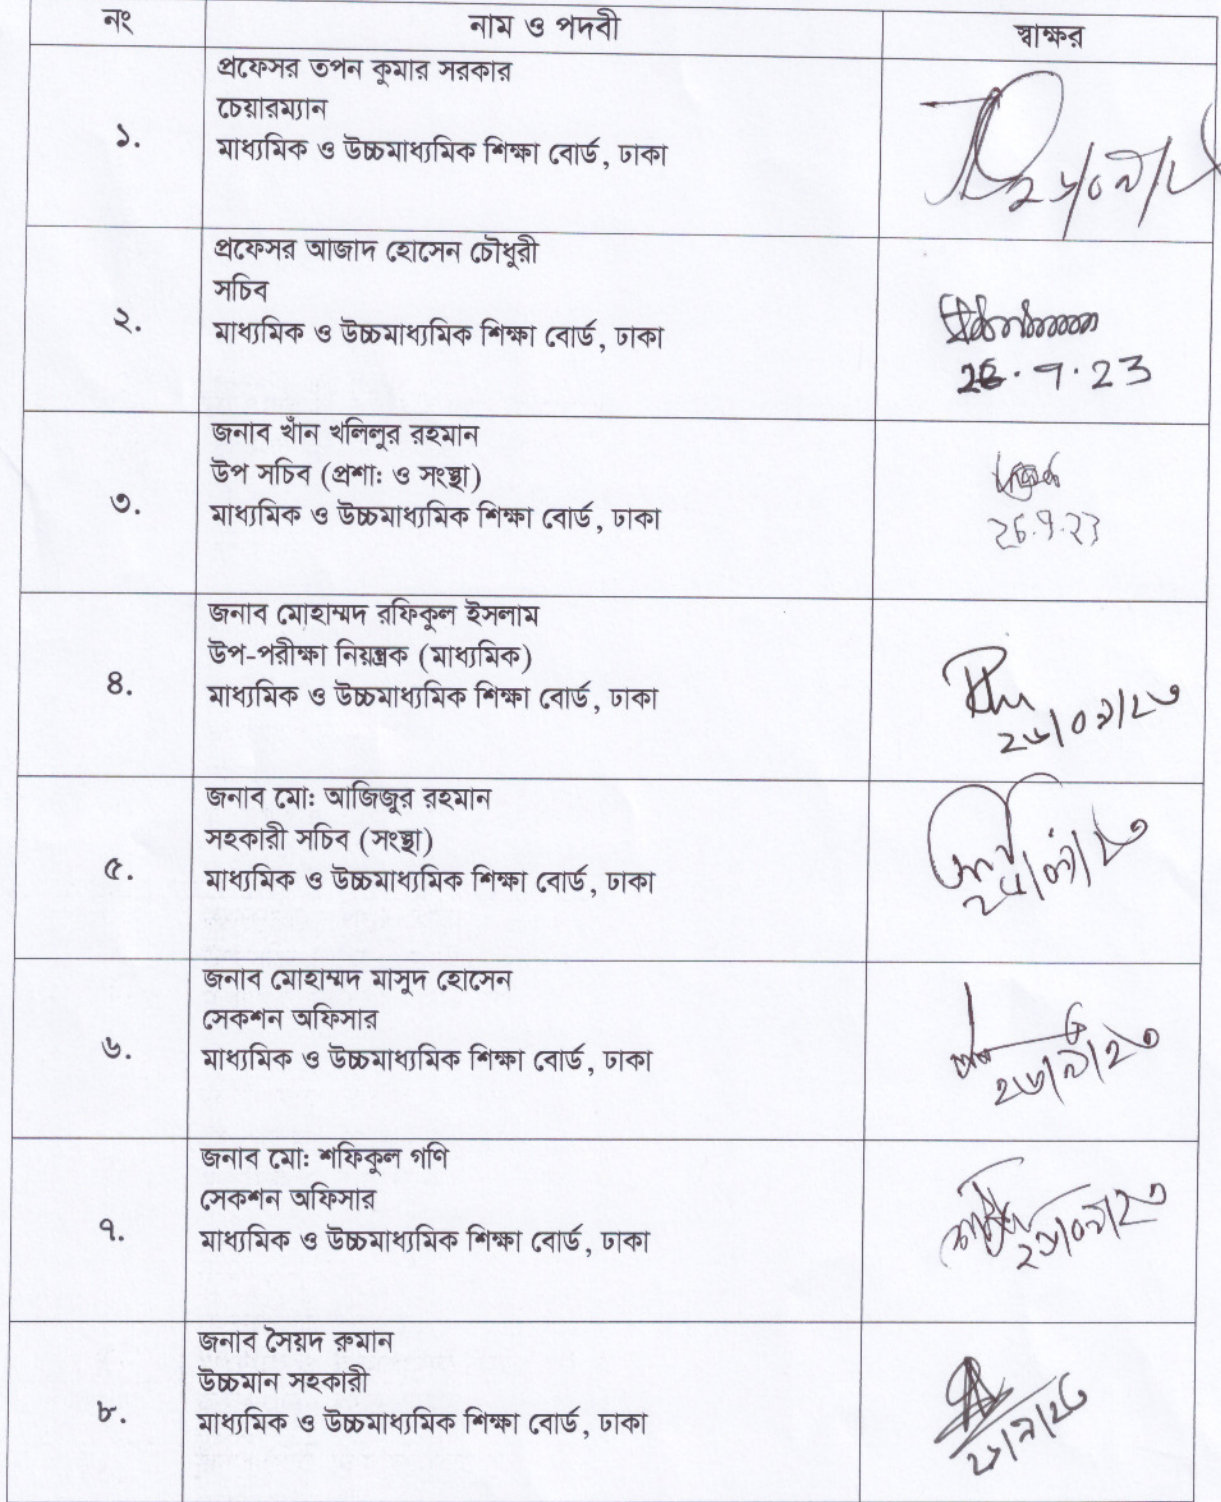 নং নাম ও পদবী স্বাক্ষর
প্রফেসর তপন কুমার সরকার
চেয়ারম্যান
১.
মাধ্যমিক ও উচ্চমাধ্যমিক শিক্ষা বোর্ড, ঢাকা
২৬/০৯/২
প্রফেসর আজাদ হোসেন চৌধুরী
সচিব
২.
মাধ্যমিক ও উচ্চমাধ্যমিক শিক্ষা বোর্ড, ঢাকা
26.9.23
জনাব খাঁন খলিলুর রহমান
উপ সচিব (প্রশাঃ ও সংস্থা)
৩.
মাধ্যমিক ও উচ্চমাধ্যমিক শিক্ষা বোর্ড, ঢাকা
26.9.23
জনাব মোহাম্মদ রফিকুল ইসলাম
উপ-পরীক্ষা নিয়ন্ত্রক (মাধ্যমিক)
৪.
মাধ্যমিক ও উচ্চমাধ্যমিক শিক্ষা বোর্ড, ঢাকা
২৬/০৯/২৩
জনাব মো: আজিজুর রহমান
সহকারী সচিব (সংস্থা)
৫.
মাধ্যমিক ও উচ্চমাধ্যমিক শিক্ষা বোর্ড, ঢাকা
জনাব মোহাম্মদ মাসুদ হোসেন
সেকশন অফিসার
৬.
মাধ্যমিক ও উচ্চমাধ্যমিক শিক্ষা বোর্ড, ঢাকা
২৬/৯/২৩
জনাব মো: শফিকুল গণি
সেকশন অফিসার
৭.
মাধ্যমিক ও উচ্চমাধ্যমিক শিক্ষা বোর্ড, ঢাকা
২৬/০৯/২৩
জনাব সৈয়দ রুমান
উচ্চমান সহকারী
৮.
মাধ্যমিক ও উচ্চমাধ্যমিক শিক্ষা বোর্ড, ঢাকা
২৬/৯/২৩